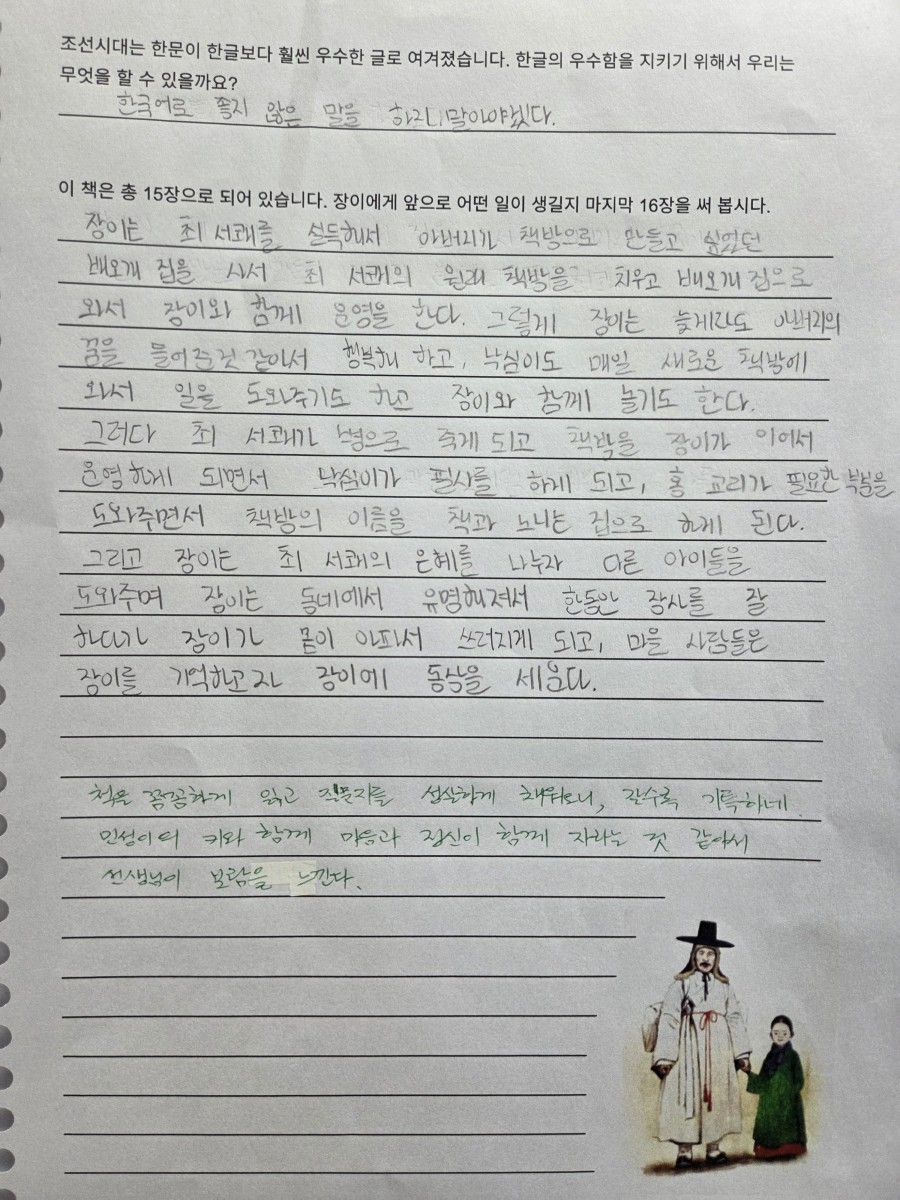 조선시대는 한문이 한글보다 훨씬 우수한 글로 여겨졌습니다. 한글의 우수함을 지키기 위해서 우리는
무엇을 할 수 있을까요?
한국어로 좋지 않은 말을 하지 말아야겠다.
이 책은 총 15장으로 되어 있습니다. 장이에게 앞으로 어떤 일이 생길지 마지막 16장을 써 봅시다.
장이는 최 서쾌를 설득해서 아버지가 책방으로 만들고 싶었던
배오개 집을 사서 최 서쾌의 원래 책방을 치우고 배오개 집으로
와서 장이와 함께 운영을 한다. 그렇게 장이는 늦게라도 아버지의
꿈을 들어준것 같아서 행복해 하고, 낙심이도 매일 새로운 책방에
와서 일을 도와주기도 하고 장이와 함께 놀기도 한다.
그러다 최 서쾌가 병으로 죽게 되고 책방을 장이가 이어서
운영하게 되면서 낙심이가 필사를 하게 되고, 홍 교리가 필요한 부분을
도와주면서 책방의 이름을 책과 노니는 집으로 하게 된다.
그리고 장이는 최 서쾌의 은혜를 나누자 다른 아이들을
도와주며 장이는 동네에서 유명해져서 한동안 장사를 잘
하다가 장이가 몸이 아파서 쓰러지게 되고, 마을 사람들은
장이를 기억하고자 장이에 동상을 세운다.
책은 꼼꼼하게 읽고 질문지를 성실하게 채워오니, 갈수록 기특하네.
민성이의 키와 함께 마음과 정신이 함께 자라는 것 같아서
선생님이 보람을 느낀다.